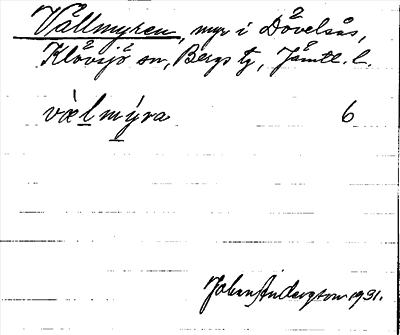 Vållmyren, myr i Dövelsås,
Klövsjö sn, Bergs tg, Jämtl. l.
væl mýra 6
Johan Anderson 1931.